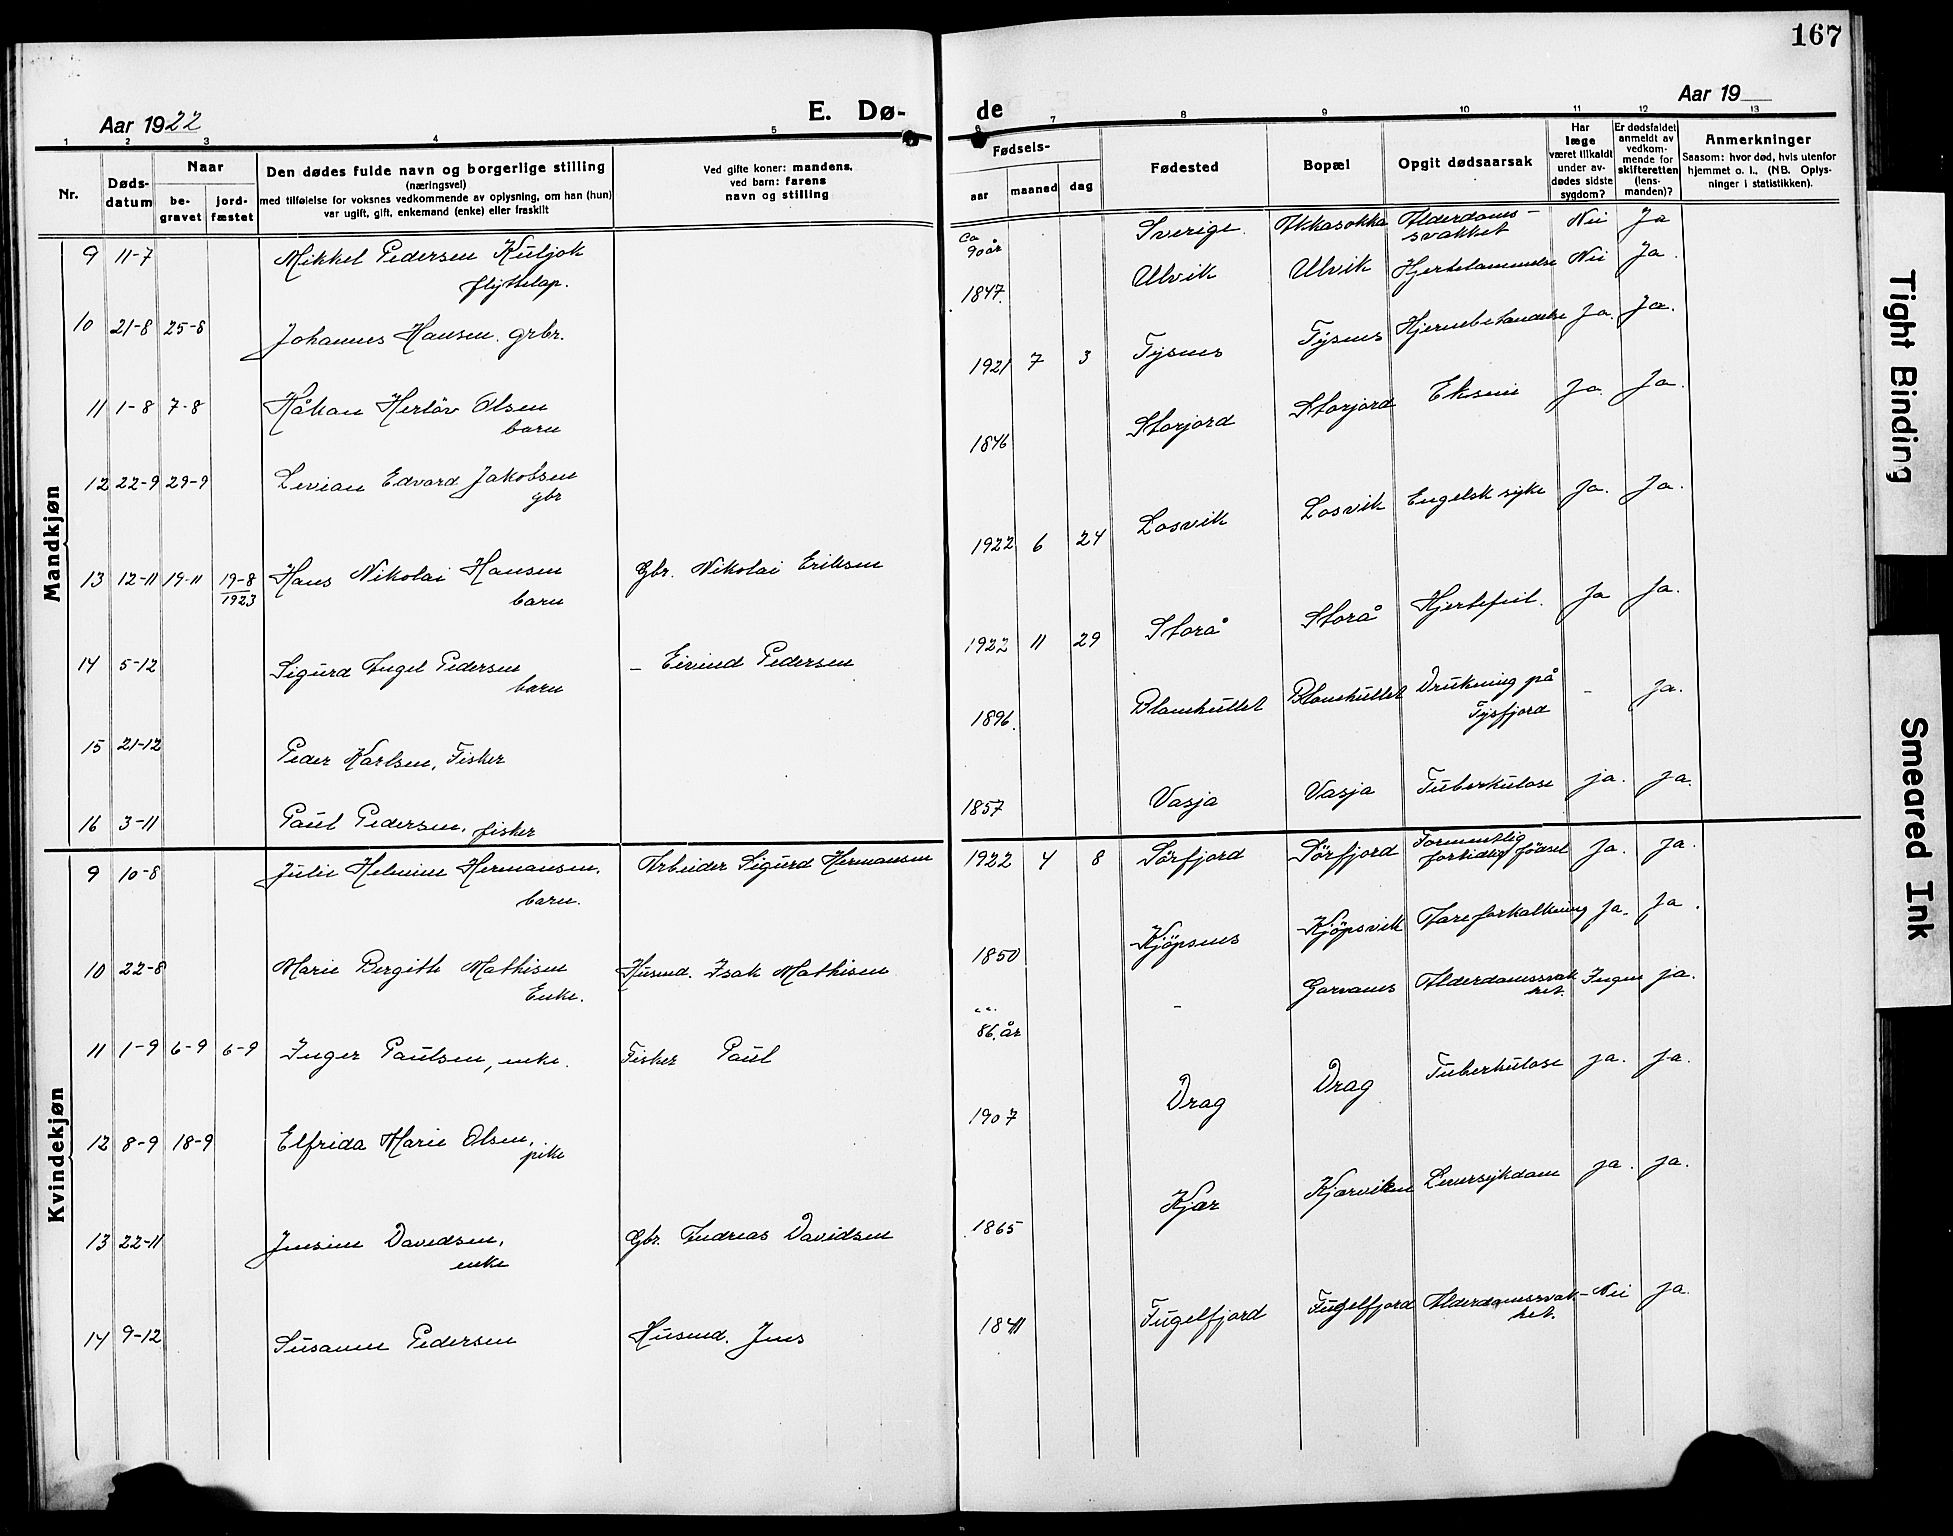 167
Aar 1922
E. Dø-
de
Aar 19
1 2 3 4 5 6 7 8 9 10 11 12 13
Nr.
Døds-
datum
Naar
be-
gravet
jord-
fæstet
Den dødes fulde navn og borgerlige stilling
(næringsvei)
med tilføielse for voksnes vedkommende av oplysning, om han (hun)
var ugift, gift, enkemand (enke) eller fraskilt
Ved gifte koner: mandens,
ved barn: farens
navn og stilling
Fødsels-
aar
maaned
dag
Fødested
Bopæl
Opgit dødsaarsak
Har
læge
været tilkaldt
under av-
dødes sidste
sygdom?
Er dødsfaldet
anmeldt av
vedkom-
mende for
skifteretten
(lens-
manden)?
Anmerkninger
Saasom: hvor død, hvis utenfor
hjemmet o. l., (NB. Oplys-
ninger i statistikken).
Mandkjøn
9 11-7 Mikkel Pedersen Kuljok
flyttelap.
ca
90 år Sverige. Akkasokka Alderdoms-
svakket Nei Ja
10 21-8 25-8 Johannes Hansen. grbr.
1847. Ulvik Ulvik Hjertelammelse Nei Ja.
11 1-8 7-8 Håkan Herlöv Olsen
barn
1921 7 3 Tysnes Tysnes Hjernebetændelse Ja. Ja.
12 22-9 29-9 Levian Edvard Jakobsen
gbr
1846 Storjord Storjord Eksem Ja. Ja.
13 12-11 19-11 19-8
1923 Hans Nikolai Hansen
barn
Gbr. Nikolai Eriksen
1922 6 24 Losvik Losvik Engelsk syke Ja. Ja.
14 5-12 Sigurd Ingel Pedersen
barn
— Eivind Pedersen
1922 11 29 Storå Storå Hjertefeil. Ja Ja.
15 21-12 Peder Karlsen, Fisker
1896. Blomhullet Blomhullet Drukning på
Tysfjord - Ja.
16 3-11 Paul Pedersen, fisker
1857 Vasja Vasja Tuberkulose ja. Ja.
Kvindekjøn
9 10-8 Julie Helmine Hermansen,
barn.
Arbeider Sigurd Hermansen
1922 4 8 Sörfjord Sörfjord Formentlig
fortidlig födsel Ja. Ja.
10 22-8 Marie Bergithe Mathisen
Enke.
Husmd. Isak Mathisen
1850 Kjöpsnes Kjöpsvik Åreforkalkning Ja. Ja.
11 1-9 6-9 6-9 Inger Paulsen, enke.
Fisker Paul
ca.
86 år - Garvanes Alderdomssvak
ket. Ingen ja.
12 8-9 18-9 Elfrida Marie Olsen,
pike
1907 Drag Drag Tuberkulose ja. Ja.
13 22-11 Jensine Davidsen,
enke
Gbr. Andreas Davidsen
1865 Kjær Kjærviken Leversykdom ja. ja.
14 9-12 Susanne Pedersen
Husmd. Jens
1841 Fugelfjord Fugelfjord Alderdomssvak-
ket. Nei Ja.
Tight Binding
Smeared Ink